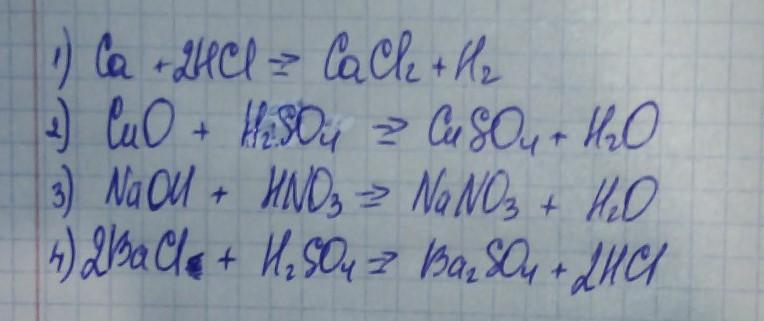 1) Ca + 2HCl => CaCl₂ + H₂
2) CuO + H₂SO₄ => CuSO₄ + H₂O
3) NaOH + HNO₃ => NaNO₃ + H₂O
4) 2BaCl + H₂SO₄ => Ba₂SO₄ + 2HCl